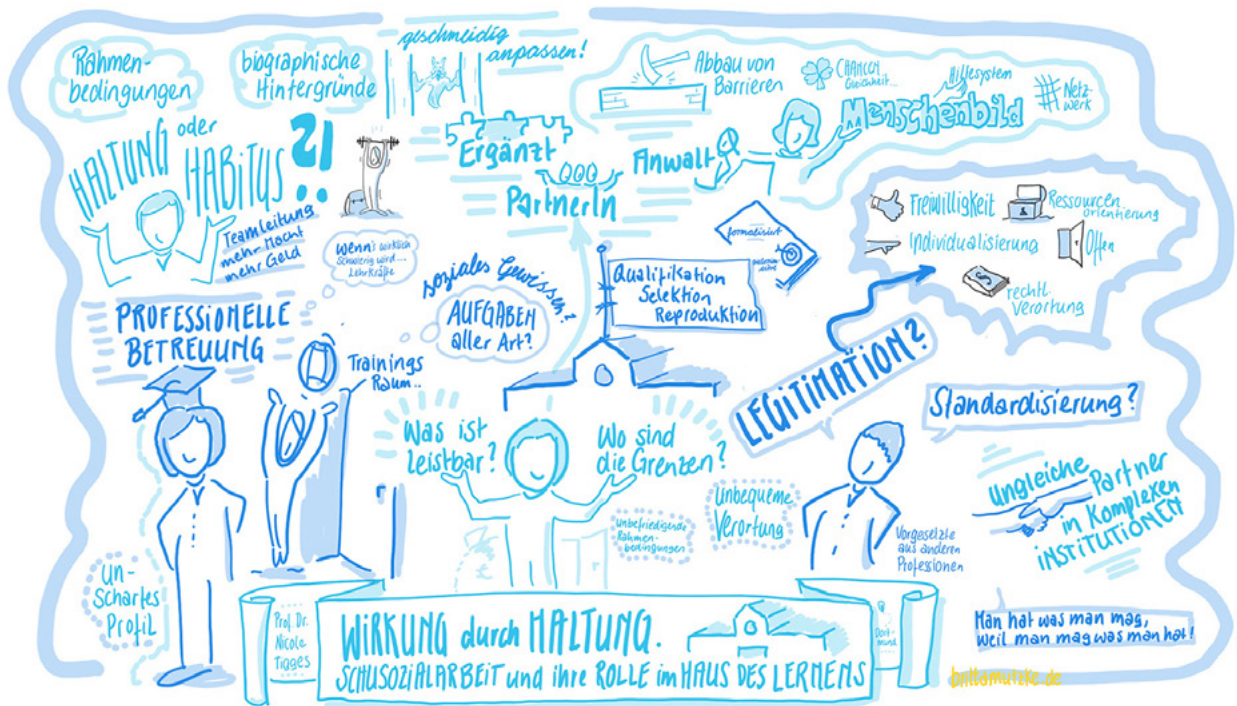 Rahmen-
bedingungen
biographische
Hintergründe
geschmeidig
anpassen!
Abbau von
Barrieren
CHANCEN
Gleichheit...
Hilfesystem
Menschenbild
#Netz-
werk
HALTUNG oder
HABITUS ?!
Teamleitung
mehr Macht
mehr Geld
Ergänzt
PartnerIn
Anwalt
wenn's wirklich
schwierig wird...
Lehrkräfte
formalisiert
Qualifikation
Selektion
Reproduktion
Freiwilligkeit
Ressourcen
orientierung
Individualisierung
Offen
rechtl.
Verortung
PROFESSIONELLE
BETREUUNG
Trainings
Raum..
soziales Gewissen?
AUFGABEN
aller Art?
LEGITIMATION?
Standardisierung?
Was ist
leistbar?
Wo sind
die Grenzen?
unbefriedigende
Rahmen-
bedingungen
Unbequeme
Verortung
Vorgesetzte
aus anderen
Professionen
ungleiche
Partner
in Komplexen
INSTITUTIONEN
un-
Scharfes
Profil
Prof. Dr.
Nicole
Tigges
WIRKUNG durch HALTUNG.
SCHUSOZIALARBEIT und ihre ROLLE im HAUS DES LERNENS
Dort-
mund
Man hat was man mag,
weil man mag was man hat!
brittamutzke.de